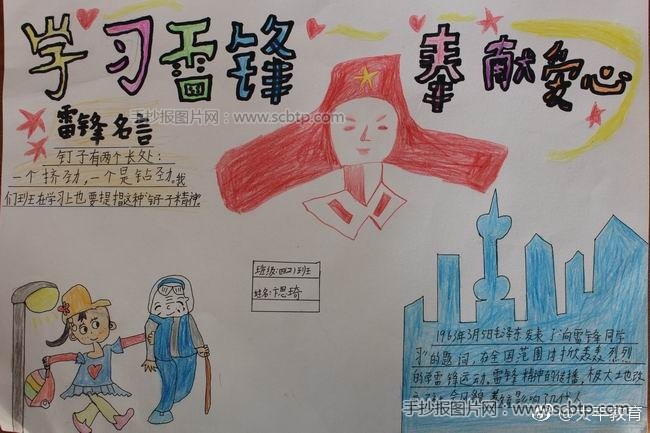 学习雷锋 奉献爱心
手抄报图片网：www.scbtp.com
雷锋名言
钉子有两个长处：
一个挤劲，一个是钻劲。我
们班在学习上也要提揾这种"钉子精神"
班级：四(2)班
姓名：
1963年3月5日毛泽东发表了"向雷锋同学
习"的题词，在全国范围
的学雷锋运动。雷锋精神的传播，极大地改
影响几代人
手抄报图片网：www.scbtp.com
教育